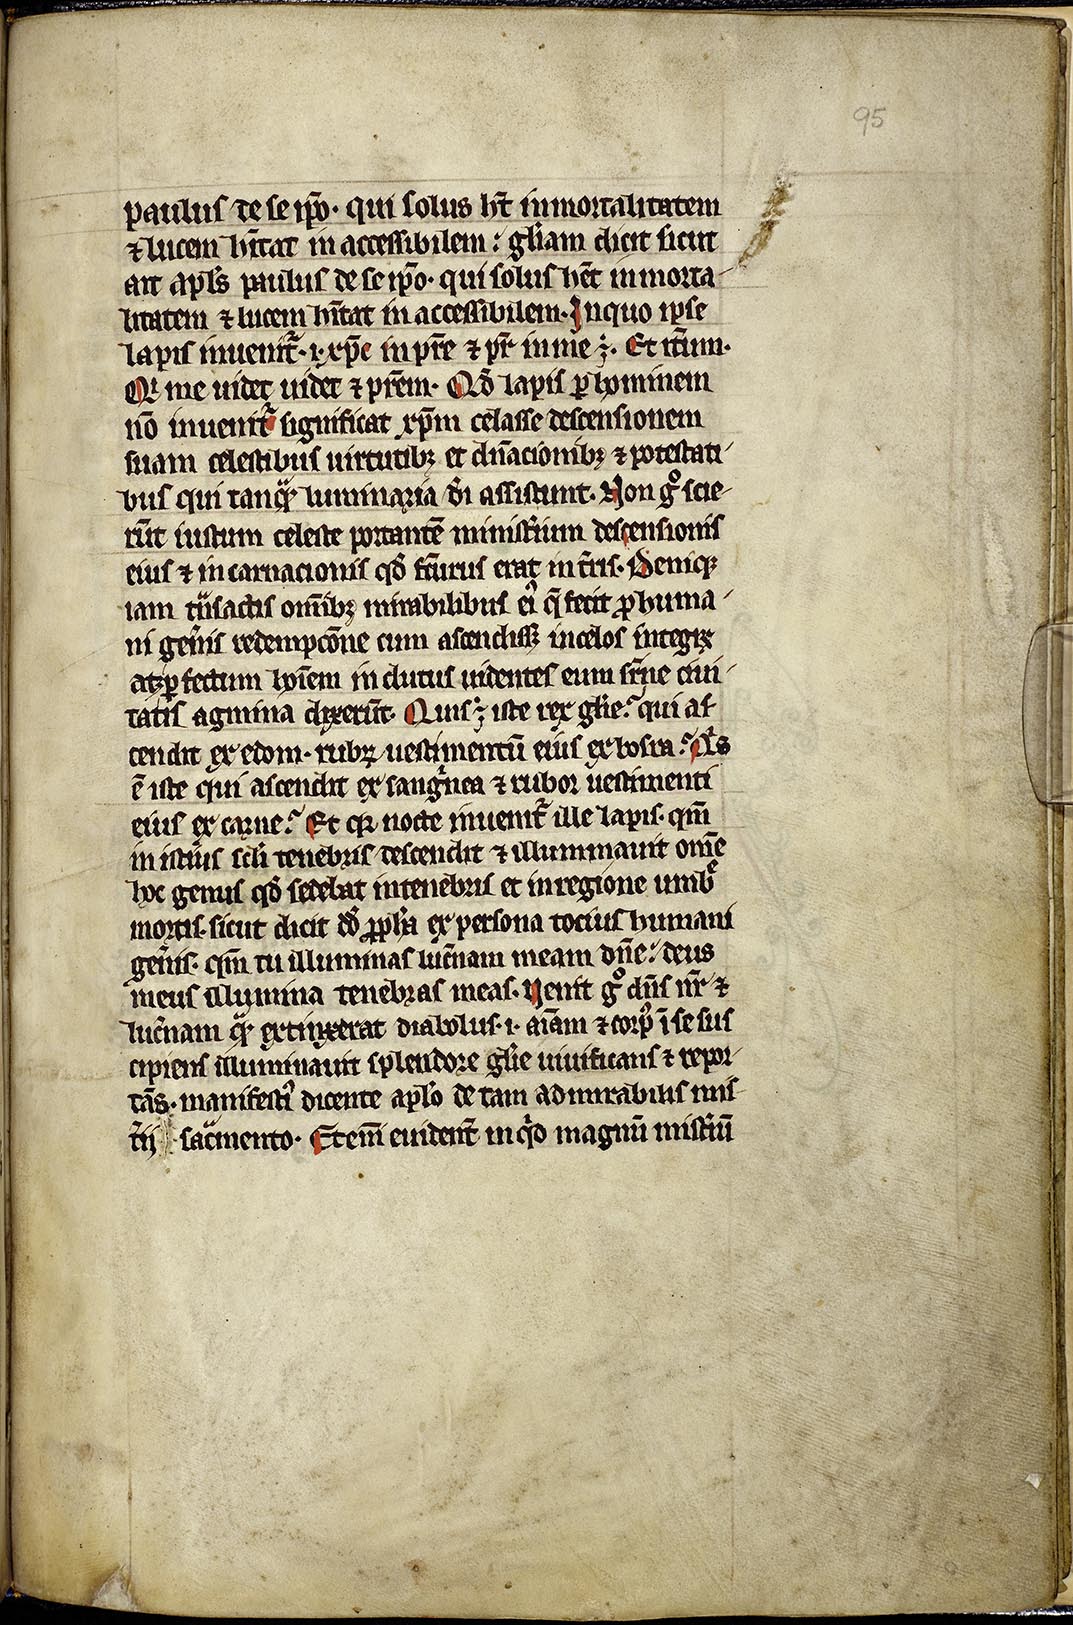 95
paulus de se ip̄o· qui solus h̄t inmortalitatem
⁊ lucem h̄itat in accessibilem: gl̄iam dicit sicut
ait apl̄s paulus de se ip̄o· qui solus h̄et inmorta-
litatem ⁊ lucem h̄itat in accessibilem· Inquo ipse
lapis inuenit᷑·i·xp̄c in pr̄e ⁊ pr̄ in me ē· Et itr̄um·
Qͥ me uidet uidet ⁊ pr̄em· Qd̄ lapis ꝑ hominem
nō inuenit᷑ significat xp̄m celasse descensionem
suam celestibus uirtutibꝫ et dn̄acionibꝫ ⁊ potestati-
bus qui tanqͣꝫ luminaria dī assistunt· Non gͦ scie-
rūt iustum celeste portantē minist̄ium descensionis
eius ⁊ incarnacionis qd̄ fc̄urus erat int̄ris· Deniqꝫ
iam tͣnsactis om̄ibꝫ mirabilibus eiꝰ q̄ fecit ꝓ huma-
ni gen̄is redempcōne cum ascendissꝫ incelos integrꝫ
atqꝫ ꝑfectum hoīem indutus uidentes eum sr̄ne ciui-
tatis agmina dixerūt· Quis ē iste rex glīe? qui as
cendit ex edom· rubꝫ uestimentū eius exbosra? Qͥs
ē iste qui ascendit ex sangͥnea ⁊ rubor uestimenti
eius ex carne? Et qꝛ nocte inuenit᷑ ille lapis· qm̄
in istius scl̄i tenebris descendit ⁊ illuminauit om̄e
hoc genus qd̄ sedebat intenebris et inregione umbͤ
mortis· sicut dicit dd̄ ꝓph̄a ex persona tocius humani
gen̄is· qm̄ tu illuminas luc̄nam meam dn̄e? deus
meus illumina tenebras meas· Uenit gͦ dn̄s nr̄ ⁊
luc̄nam qͣꝫ extinxerat diabolus·i· aīam ⁊ corpꝰ ī se sus
cipiens illuminauit splendore glīe uiuificans ⁊ repor-
tās· manifestiꝰ dicente apl̄o de tam admirabilis mis-
t̄ij sacͣmento· Etenī euident̄ inqͥd magnū mist̄iū